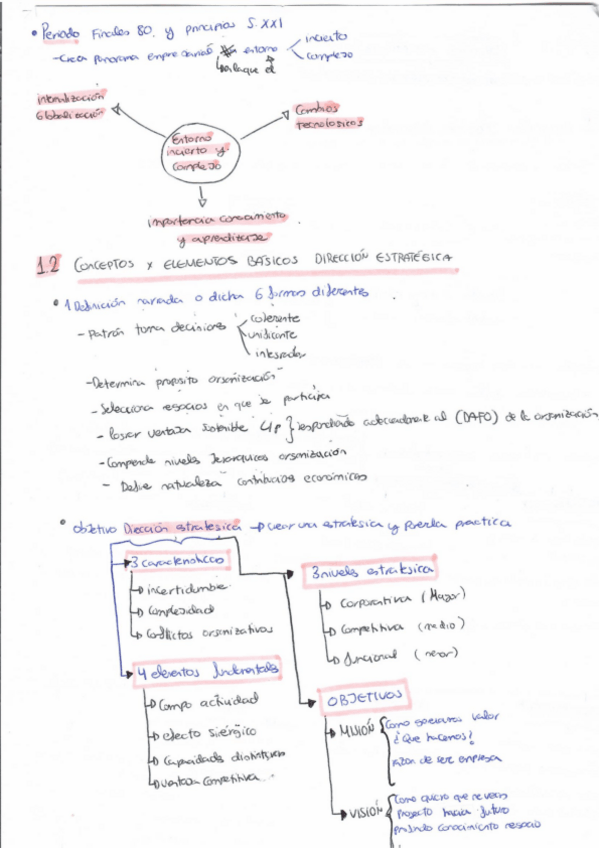 • Periodo Finales 80. y principios S. XXI
- Crea panorama empresarial entorno
incierto
complejo
internalización
Globalización
Cambios
tecnologicos
Entorno
incierto y
complejo
importancia conocimiento
y aprendizaje
1.2 CONCEPTOS Y ELEMENTOS BÁSICOS DIRECCIÓN ESTRATÉGICA
• 1 Definición variada o dicha 6 formas diferentes
- Patrón toma decisiones
coherente
unificante
integrador
- Determina proposito organización
- Selecciona negocios en que se participa
- Lograr ventaja sostenible L/p } respondiendo adecuadamente al (DAFO) de la organización
- Comprende niveles Jerarquicos organización
- Define naturaleza contribucios económicos
• Objetivo Dirección estrategica → crear una estrategia y ponerla practica
3 caracteristicas
incertidumbre
Complejidad
Conflictos organizativos
3 niveles estrategica
Corporativa (Mayor)
Competitiva (medio)
funcional (menor)
4 elementos fundamentals
Campo actividad
efecto sinérgico
Capacidads distintivas
Ventaja Competitiva
OBJETIVOS
MISIÓN
Como generamos valor
¿Que hacemos?
razon de ser empresa
VISIÓN
Como quiero que se vea
proyecto hacia futuro
conocimiento negocio